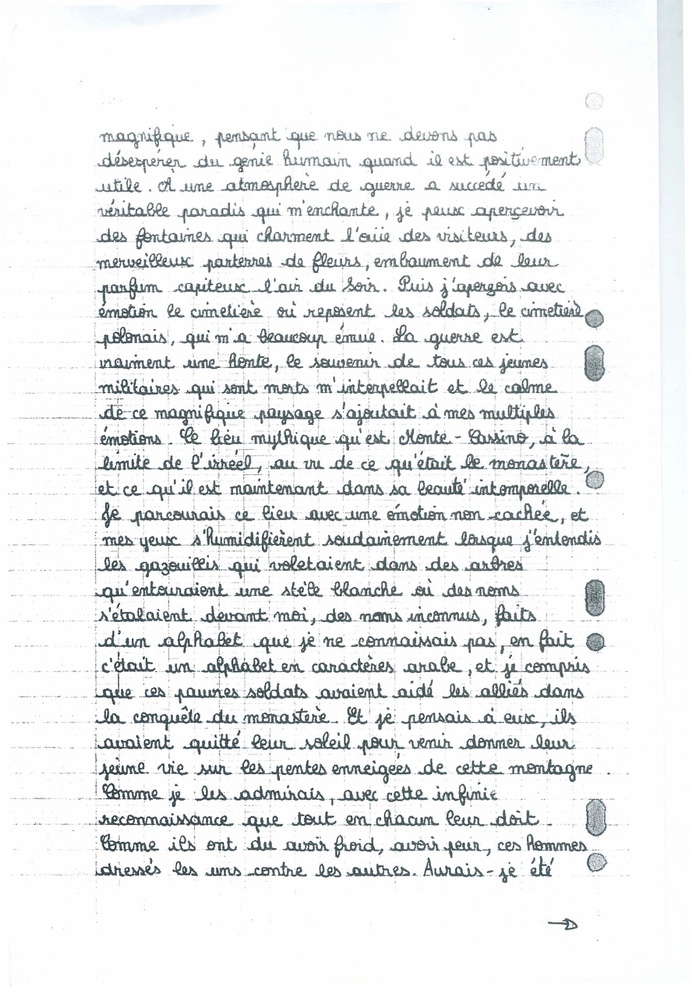 magnifique, pensant que nous ne devons pas
désespérer du génie humain quand il est positivement
utile. A une atmosphère de guerre a succédé un
véritable paradis qui m'enchante, je peux aperçevoir
des fontaines qui charment l'ouïe des visiteurs, des
merveilleux parterres de fleurs, embaument de leur
parfum capiteux l'air du Soir. Puis j'aperçois avec
émotion le cimetière où reposent les soldats, le cimetière
polonais, qui m'a beaucoup émue. La guerre est
vraiment une honte, le souvenir de tous ces jeunes
militaires qui sont morts m'interpellait et le calme
de ce magnifique paysage s'ajoutait à mes multiples
émotions. Ce lieu mythique qu'est Monte-Cassino, à la
limite de l'irréel, au vu de ce qu'était le monastère,
et ce qu'il est maintenant dans sa beauté intemporelle.
Je parcourais ce lieu avec une émotion non cachée, et
mes yeux s'humidifièrent soudainement lorsque j'entendis
les gazouillis qui voletaient dans des arbres
qu'entouraient une stèle blanche où des noms
s'étalaient devant moi, des noms inconnus, faits
d'un alphabet que je ne connaissais pas, en fait
c'était un alphabet en caractères arabe, et je compris
que ces pauvres soldats avaient aidé les alliés dans
la conquête du monastère. Et je pensais à eux, ils
avaient quitté leur soleil pour venir donner leur
jeune vie sur les pentes enneigées de cette montagne.
Comme je les admirais, avec cette infinie
reconnaissance que tout en chacun leur doit.
Comme ils ont du avoir froid, avoir peur, ces hommes
dressés les uns contre les autres. Aurais-je été